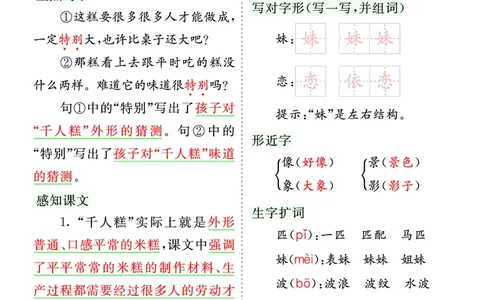 ①这糕要很多很多人才能做成,
一定特别大,也许比桌子还大吧?
②那糕看上去跟平时吃的糕没
什么两样。难道它的味道很特别吗?
句①中的“特别”写出了孩子对
“千人糕”外形的猜测。句②中的
“特别”写出了孩子对“千人糕”味道
的猜测。
感知课文
1. “千人糕”实际上就是外形
普通、口感平常的米糕,课文中强调
了平平常常的米糕的制作材料、生
产过程都需要经过很多人的劳动才
写对字形(写一写,并组词)
妹: 妹 妹 妹
恋: 恋 依 恋
提示:“妹”是左右结构。
形近字
像(好像) 景(景色)
象(大象) 影(影子)
生字扩词
匹(pǐ):一匹 匹配 马匹
妹(mèi):表妹 妹妹 姐妹
波(bō):波浪 波纹 水波